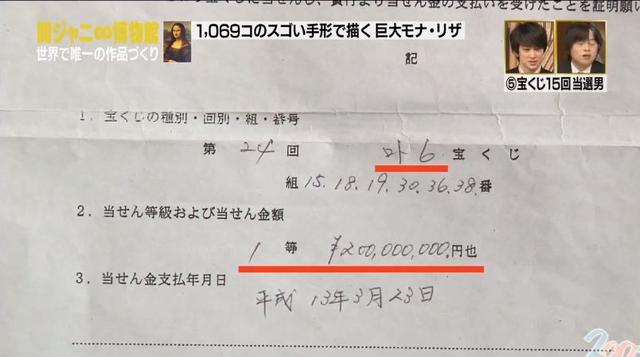 関ジャニ∞博物館
世界で唯一の作品づくり
1,069コのスゴい手形で描く 巨大モナ・リザ
⑤宝くじ15回当選男
支払いを受けたことを証明願い
記
1．宝くじの種別・回別・組・番号
第 24 回 叶6 宝くじ
組 15. 18. 19. 30. 36. 38. 番
2．当せん等級および当せん金額
1 等 ¥200,000,000.円也
3．当せん金支払年月日
平成 13年3月23日